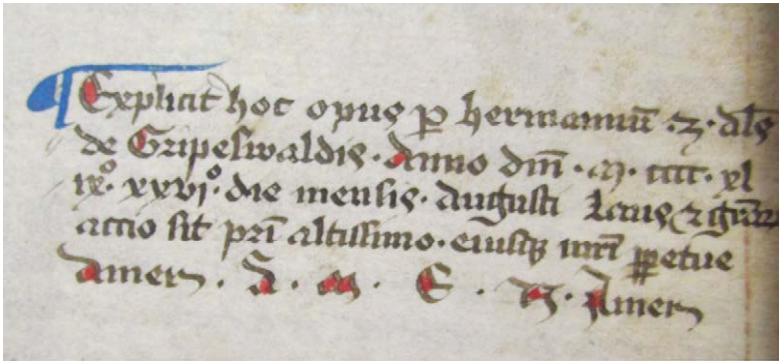 Explicit hoc opus ꝑ hermannū · z · als̄
de Gripeswaldis · Anno dm̄ · m · cccc · xl
ix° · xxvj° · die mensis · Augusti Laus
accio sit pr̄i altissimo · eiusqꝫ ꝑpetue
Amen · A · M · E · N · Amen